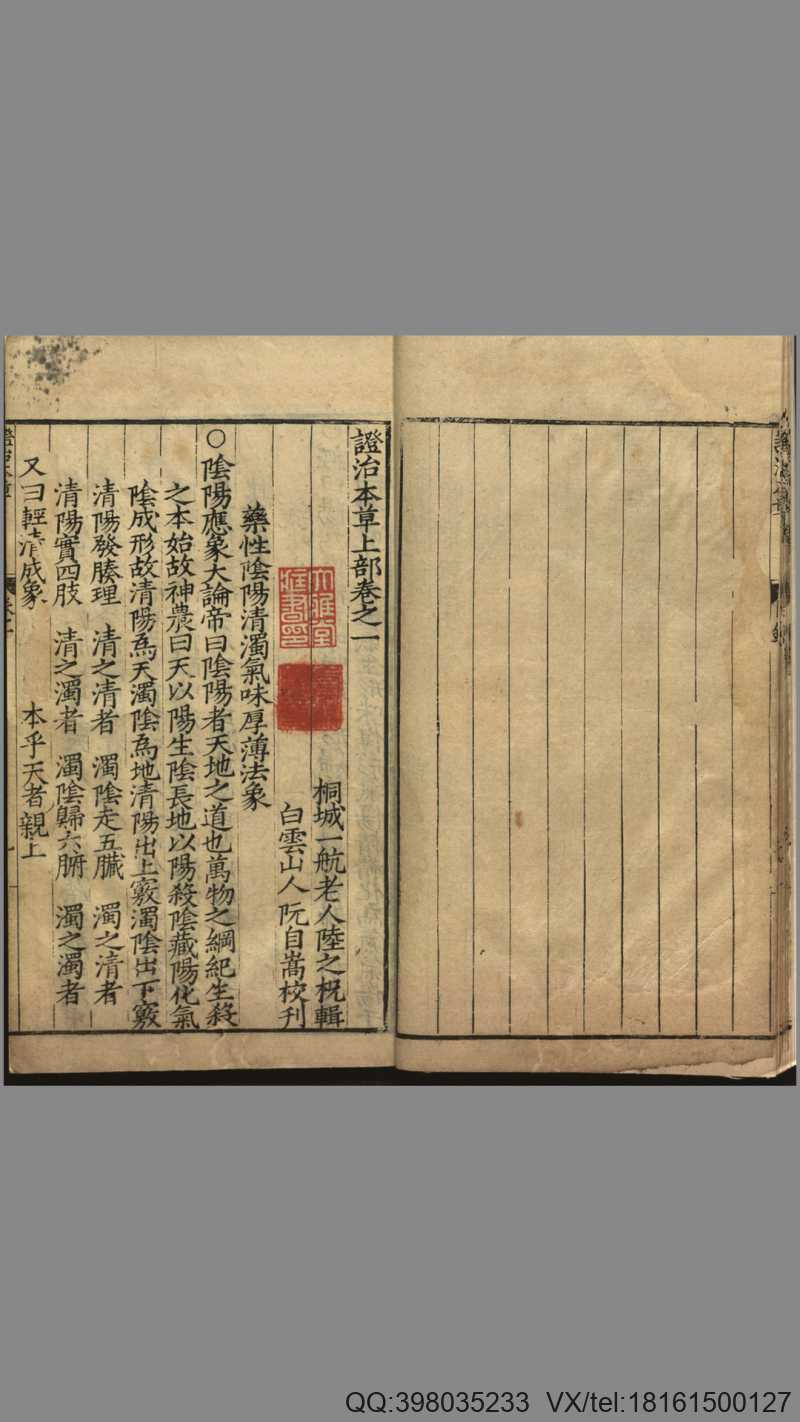 證治本草上部卷之一
桐城一航老人陸之柷輯
白雲山人阮自嵩校刊
藥性陰陽清濁氣味厚薄法象
○陰陽應象大論帝曰陰陽者天地之道也萬物之綱紀生殺
之本始故神農曰天以陽生陰長地以陽殺陰藏陽化氣
陰成形故清陽爲天濁陰爲地清陽出上竅濁陰出下竅
清陽發腠理 清之清者 濁陰走五臟 濁之清者
清陽實四肢 清之濁者 濁陰歸六腑 濁之濁者
又曰輕清成象 本乎天者親上
QQ:398035233 VX/tel:18161500127